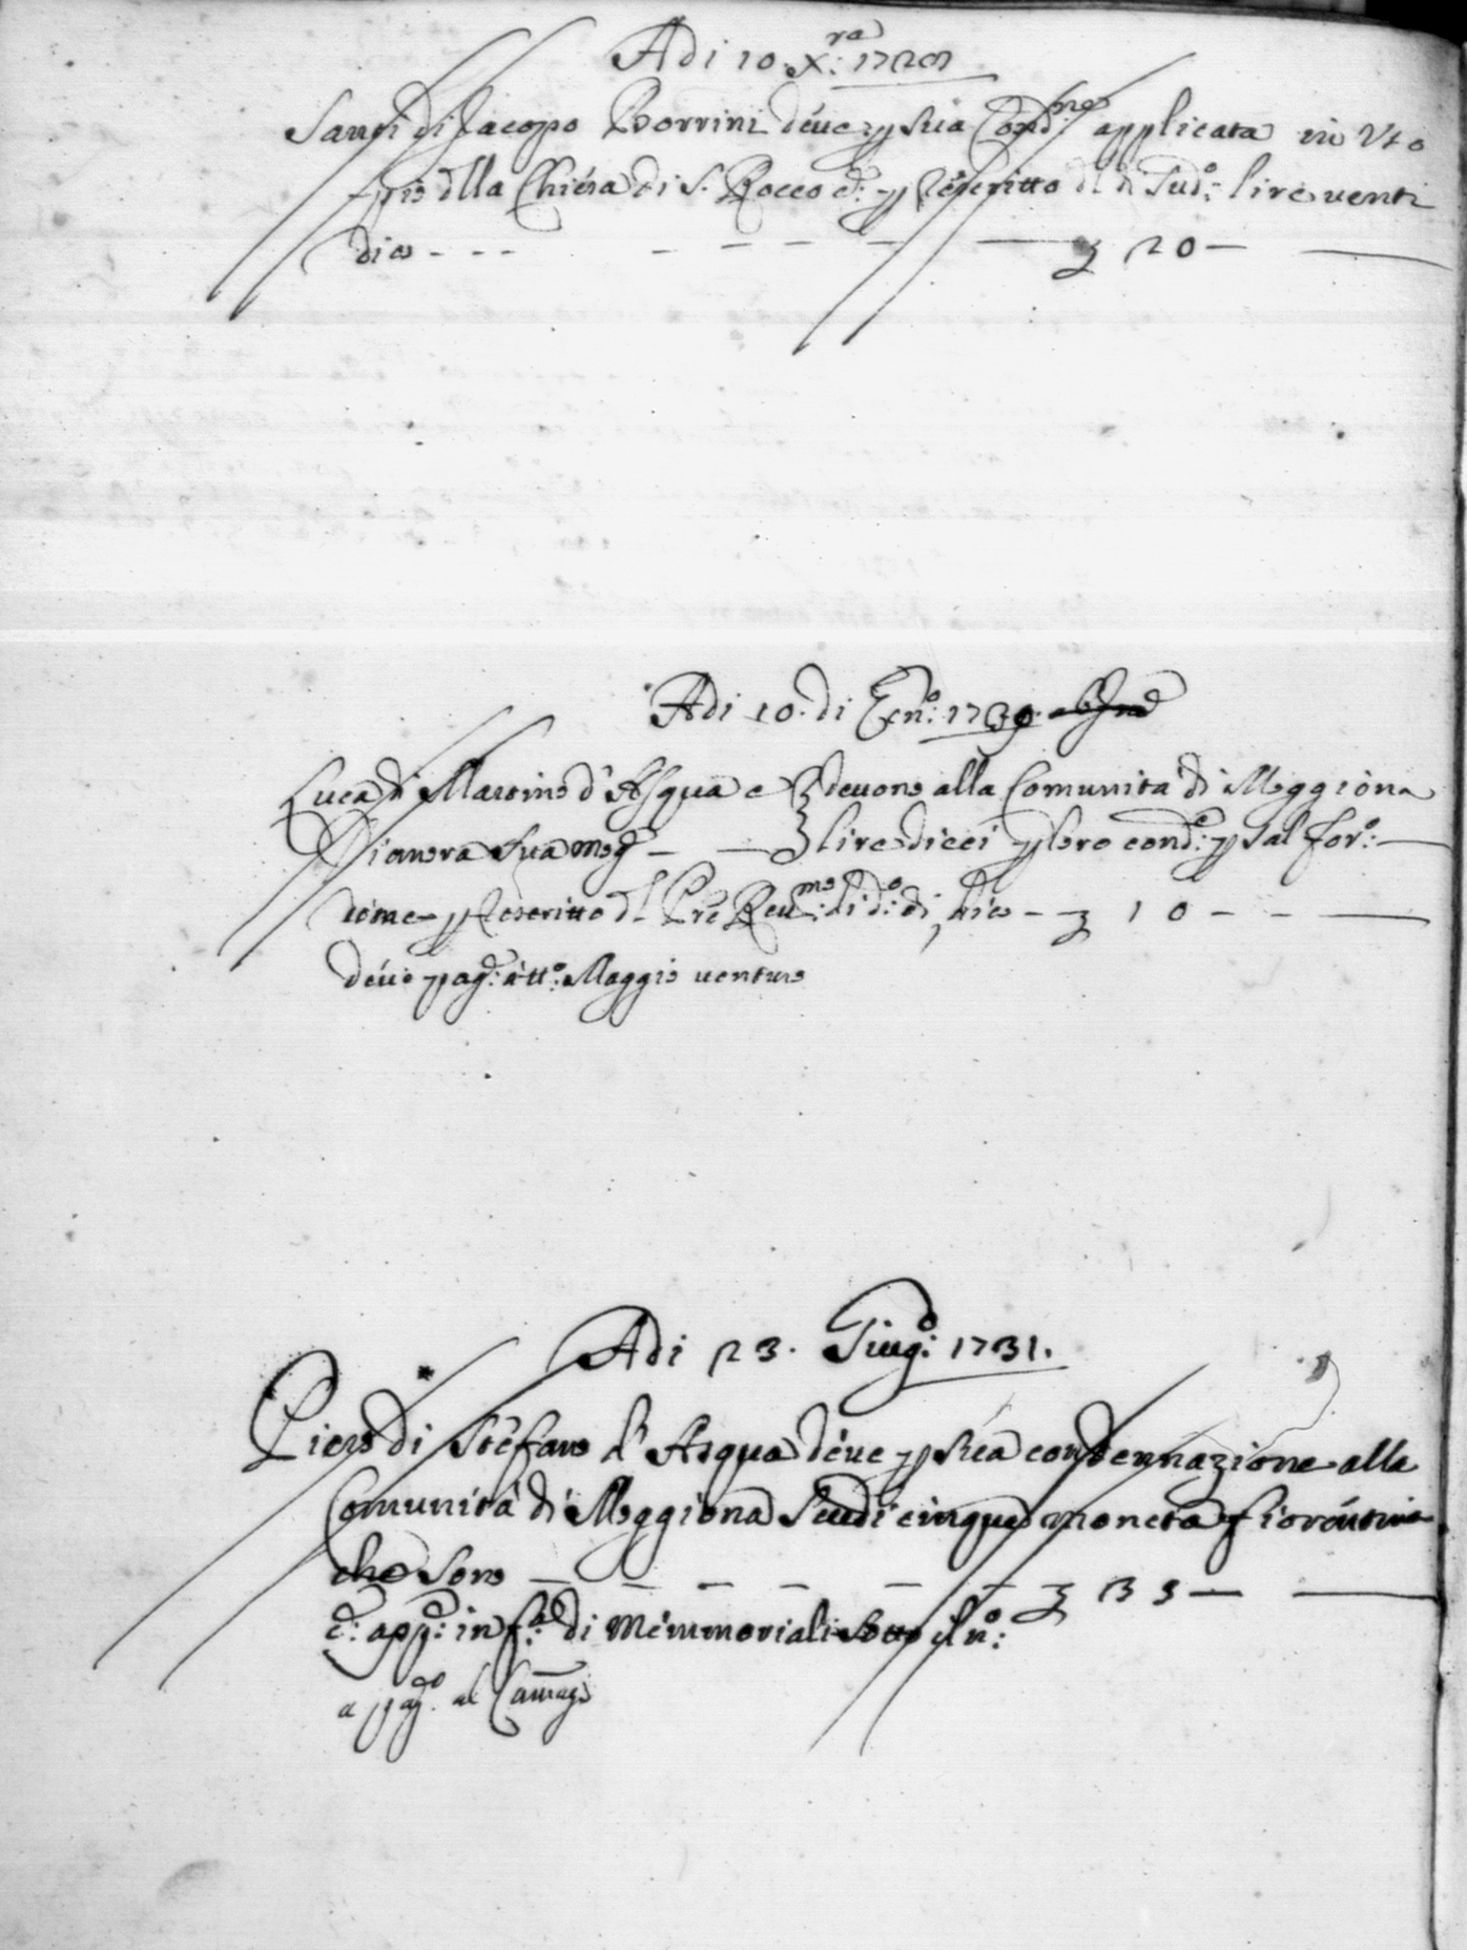 Adi 10. Xra: 1729
Santi di Jacopo Borrini deue p sua Cond:ne applicata in Vso
pio dlla Chiesa di S. Rocco e: p Rescritto dl d Sud:o lire uenti
dico - - - - - - - - £ 20 -
Adi 10. di Gen:o 1730
Luca di Martino d'Asqua e deuono alla Comunita di Moggiona
Dianora sua mog lire dieci p loro cond:e p sal for:o
p Rescritto dl Pre Reu:mo di d:o di, dico - £ 10 - -
deue pag: a tt:o Maggio uenturo
Adi 23. Giug:o 1731.
Piero di Stefano d'Asqua deue p sua condennazione alla
Comunità di Moggiona Scudi cinque moneta fiorentina
che sono - - - - - - £ 35 -
e: app: in f:a di Memmoriali sotto il n:o:
a pag:o al Camarg:o